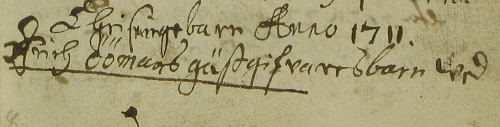 Christnegebarn Anno 1711
Erich Öömans gästgifvares barn wed